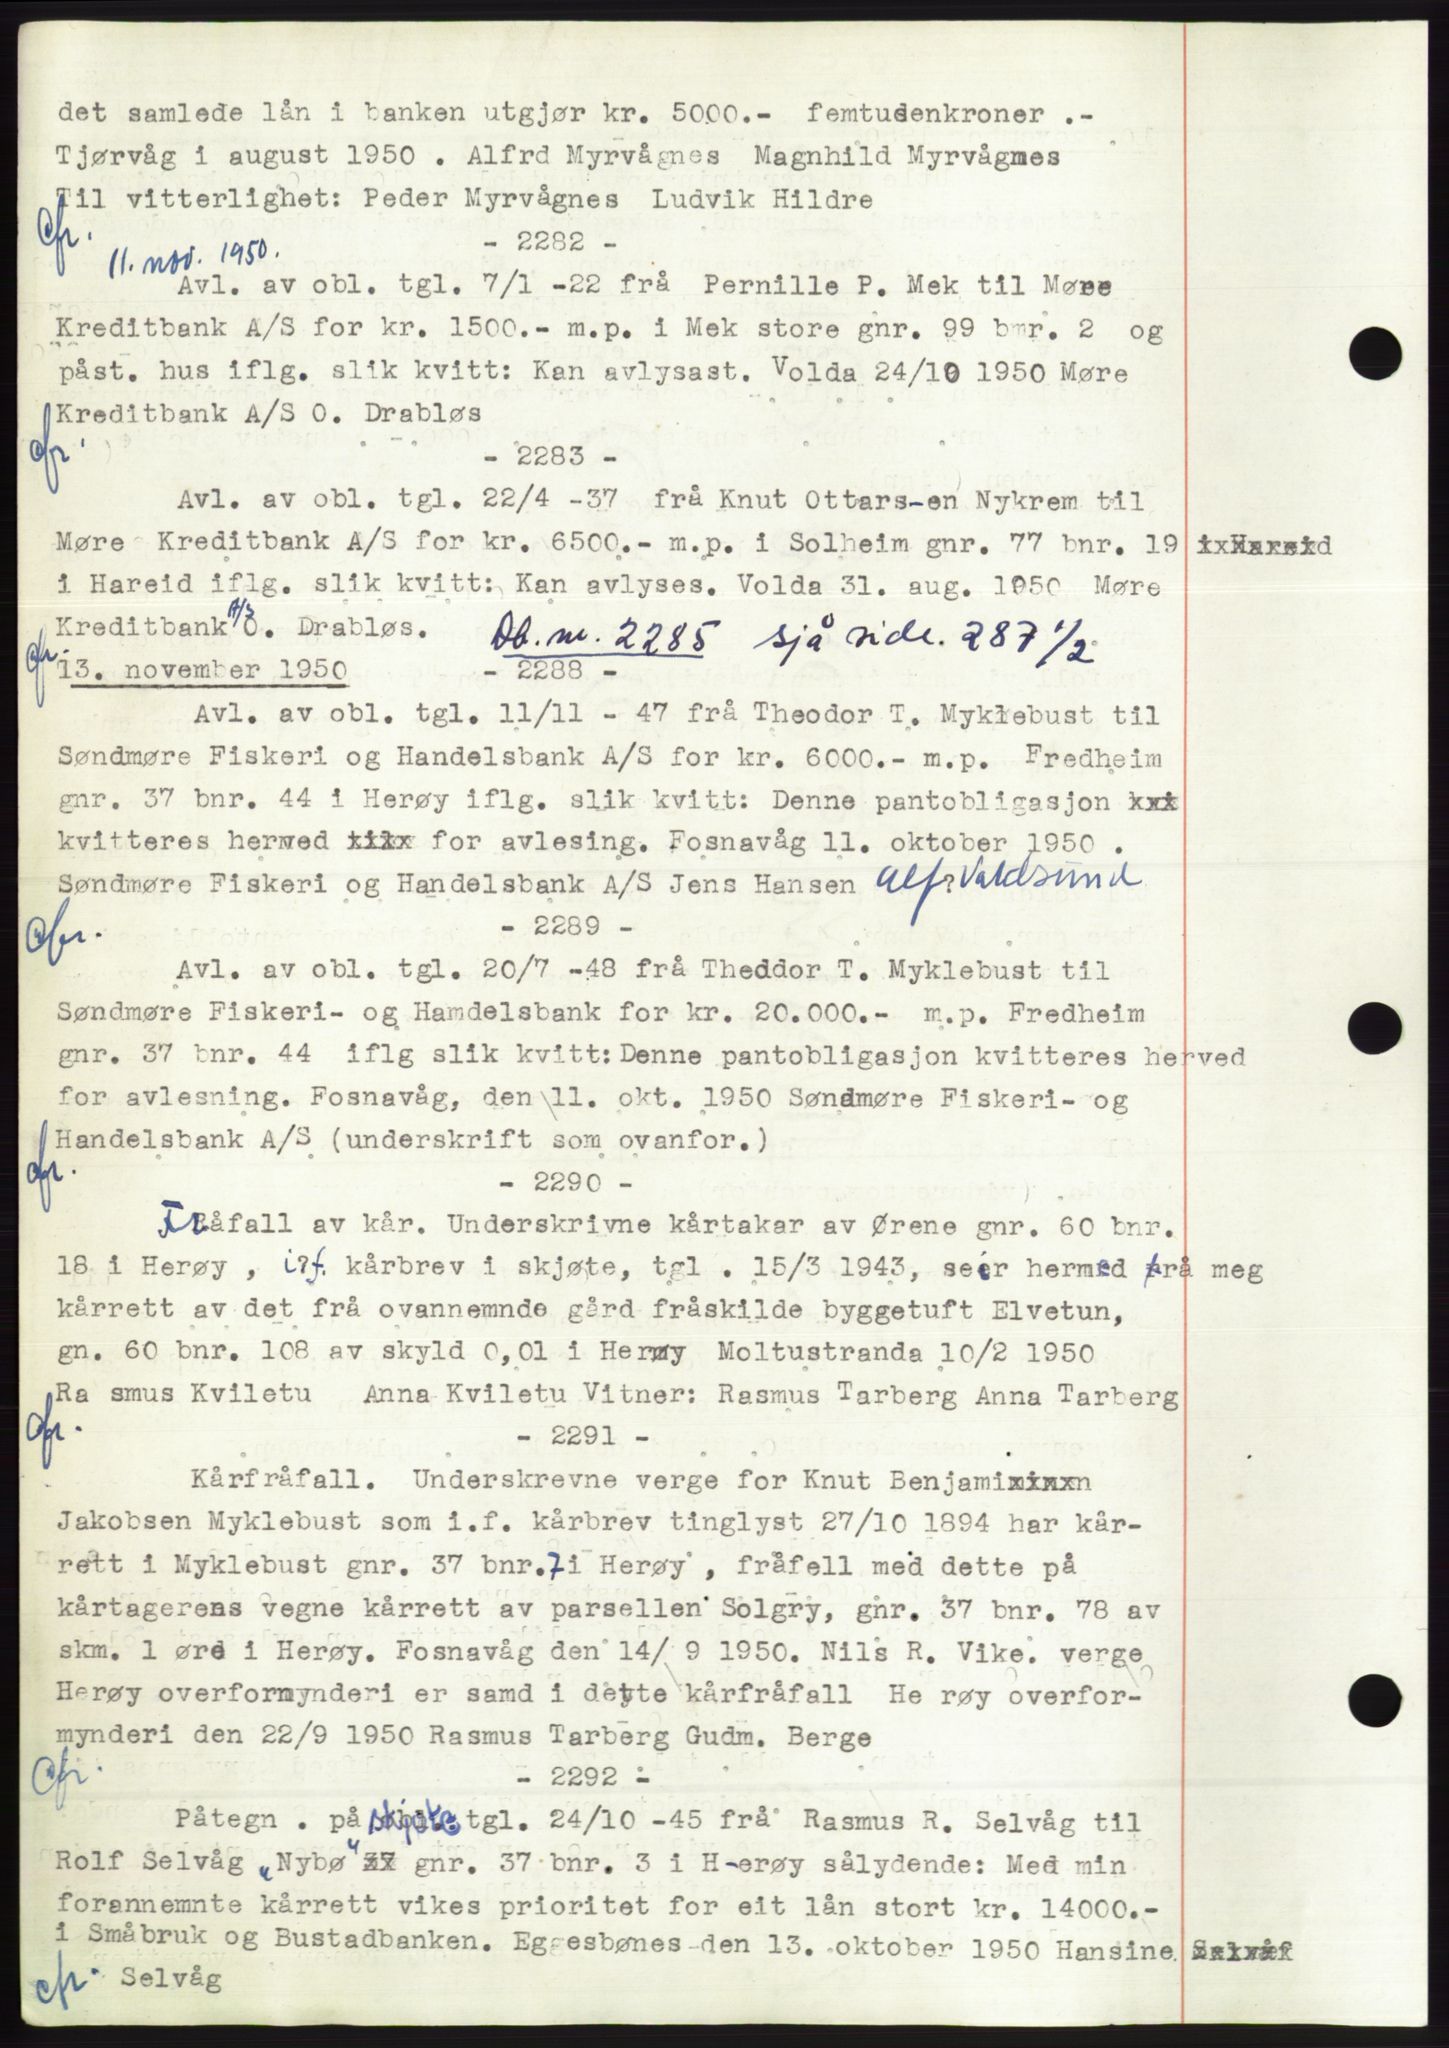 det samlede lån i banken utgjør kr. 5000.- femtusenkroner .-
Tjørvåg i august 1950 . Alfrd Myrvågnes Magnhild Myrvågnes
Til vitterlighet: Peder Myrvågnes Ludvik Hildre
cfr.
- 2282 -
11. nov. 1950.
Avl. av obl. tgl. 7/1 -22 frå Pernille P. Mek til Møre
Kreditbank A/S for kr. 1500.- m.p. i Mek store gnr. 99 bnr. 2 og
påst. hus iflg. slik kvitt: Kan avlysast. Volda 24/10 1950 Møre
Kreditbank A/S O. Drabløs
cfr.
- 2283 -
Avl. av obl. tgl. 22/4 -37 frå Knut Ottars-en Nykrem til
Møre Kreditbank A/S for kr. 6500.- m.p. i Solheim gnr. 77 bnr. 19 ixHareid
i Hareid iflg. slik kvitt: Kan avlyses. Volda 31. aug. 1950 Møre
Kreditbank A/S O. Drabløs. Db. nr. 2285 sjå side. 287 1/2
cfr.
13. november 1950 - 2288 -
Avl. av obl. tgl. 11/11 - 47 frå Theodor T. Myklebust til
Søndmøre Fiskeri og Handelsbank A/S for kr. 6000.- m.p. Fredheim
gnr. 37 bnr. 44 i Herøy iflg. slik kvitt: Denne pantobligasjon xxx
kvitteres herved xixx for avlesing. Fosnavåg 11. oktober 1950 .
Søndmøre Fiskeri og Handelsbank A/S Jens Hansen Alfr Valdsund
cfr.
- 2289 -
Avl. av obl. tgl. 20/7 -48 frå Theddor T. Myklebust til
Søndmøre Fiskeri- og Hamdelsbank for kr. 20.000.- m.p. Fredheim
gnr. 37 bnr. 44 iflg slik kvitt: Denne pantobligasjon kvitteres herved
for avlesning. Fosnavåg, den 11. okt. 1950 Søndmøre Fiskeri- og
Handelsbank A/S (underskrift som ovanfor.)
cfr.
- 2290 -
Fråfall av kår. Underskrivne kårtakar av Ørene gnr. 60 bnr.
18 i Herøy , i?f. kårbrev i skjøte, tgl . 15/3 1943, seier hermed frå meg
kårrett av det frå ovannemnde gård fråskilde byggetuft Elvetun,
gn. 60 bnr. 108 av skyld 0,01 i Herøy Moltustranda 10/2 1950
Ra smus Kviletu Anna Kviletu Vitner: Rasmus Tarberg Anna Tarberg
cfr.
- 2291 -
Kårfråfall. Underskrevne verge for Knut Benjamixixxn
Jakobsen Myklebust som i.f. kårbrev tinglyst 27/10 1894 har kår-
rett i Myklebust gnr. 37 bnr. 7 i Herøy , fråfell med dette på
kårtagerens vegne kårrett av parsellen Solgry, gnr. 37 bnr. 78 av
skm. 1 øre i Herøy. Fosnavåg den 14/ 9 1950. Nils R. Vike. verge
Herøy overformynderi er samd i dette kårfråfall He røy overfor-
mynderi den 22/9 1950 Rasmus Tarberg Gudm. Berge
cfr.
- 2292 -
Påtegn . på skjøte tgl. 24/10 -45 frå Rasmus R. Selvåg til
Rolf Selvåg „Nybø" 37 gnr. 37 bnr. 3 i H-erøy sålydende: Med min
forannemnte kårrett vikes prioritet for eit lån stort kr. 14000.-
i Småbruk og Bustadbanken. Eggesbønes den 13. oktober 1950 Hansine
cfr. Selvåg